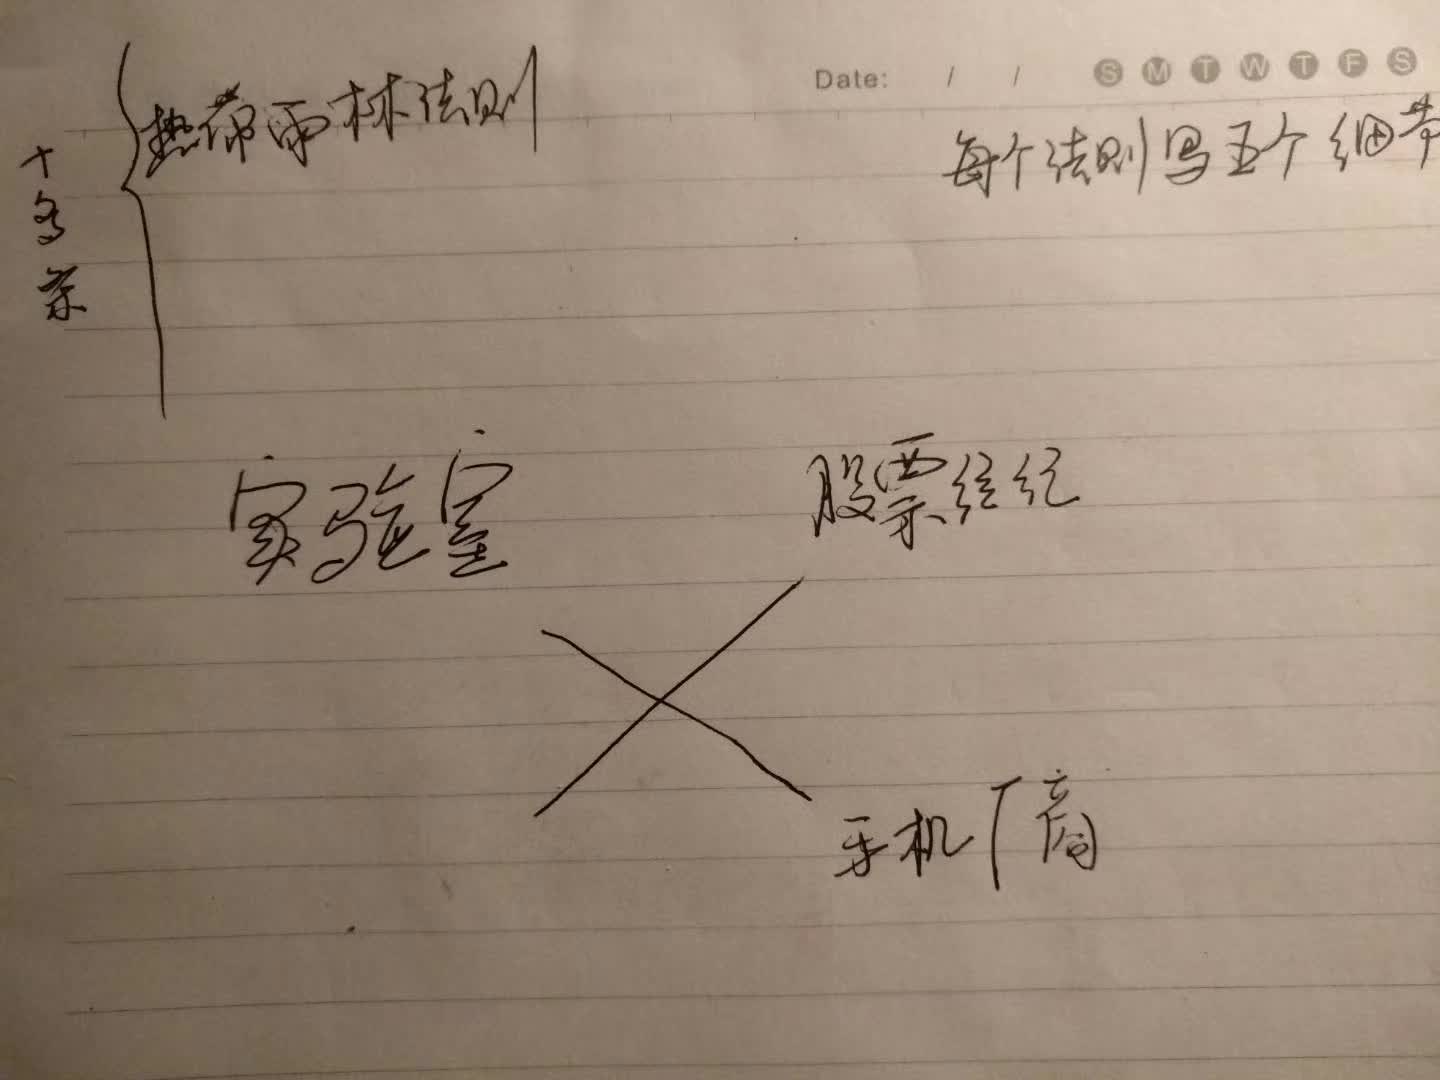 Date: / / S M T W T F S
热带雨林法则
每个法则写五个细节
十多条
实验室
股票经纪
手机厂商